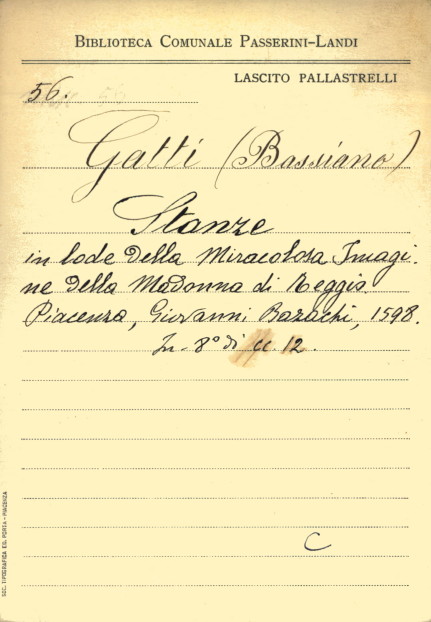 BIBLIOTECA COMUNALE PASSERINI-LANDI
LASCITO PALLASTRELLI
56.
Gatti (Bassiano)
Stanze
in lode della Miracolosa Imagi-
ne della Madonna di Reggio
Piacenza, Giovanni Bazachi, 1598.
In-8° di cc. 12.
C
SOC. TIPOGRAFICA ED. PORTA - PIACENZA